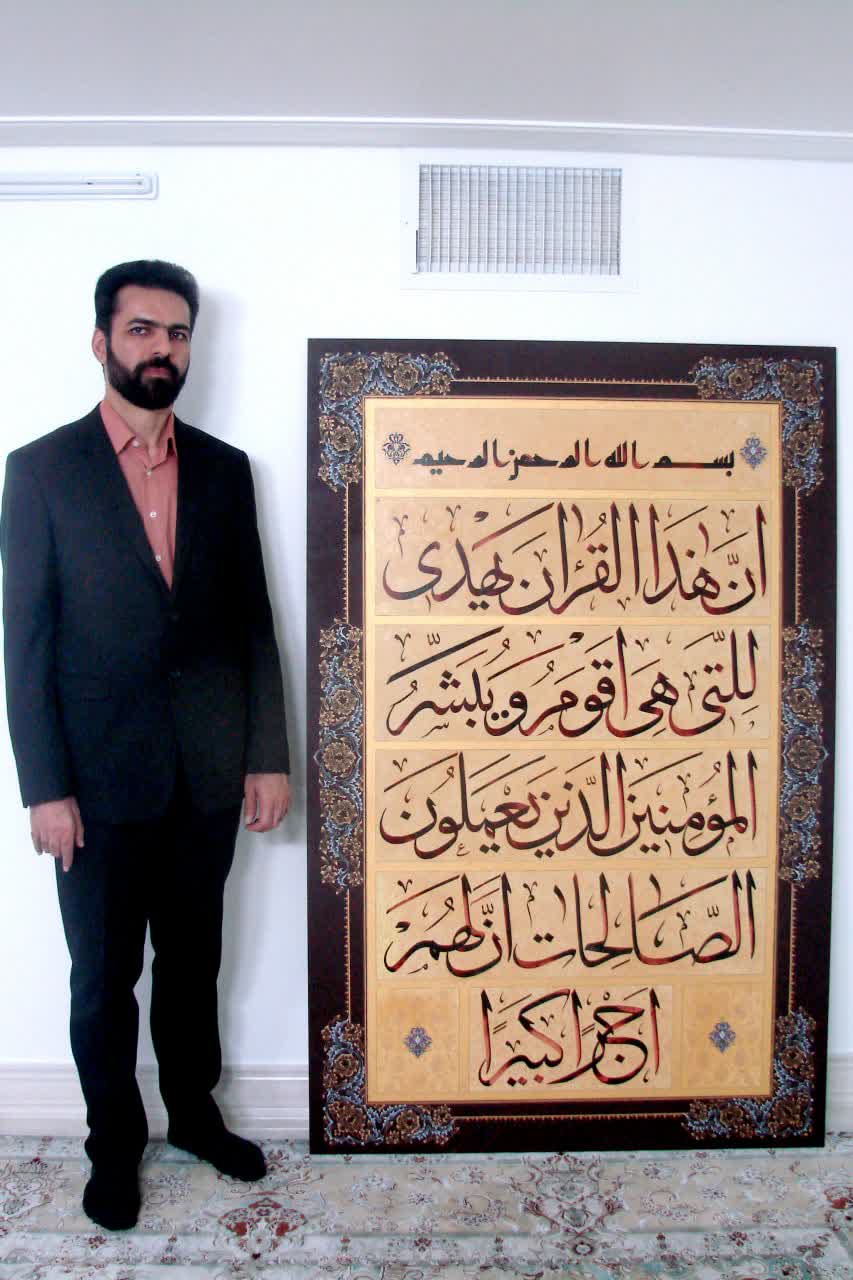 بسم الله الرحمن الرحيم
انَّ هَذَا القُرْانَ يَهْدى
لِلَّتى هِىَ اقْوَمُ وَ يُبَشِّرُ
المُؤمِنينَ الَّذينَ يَعْمَلُونَ
الصَّالِحَاتِ انَّ لَهُمْ
اجْرًا كَبيرًا